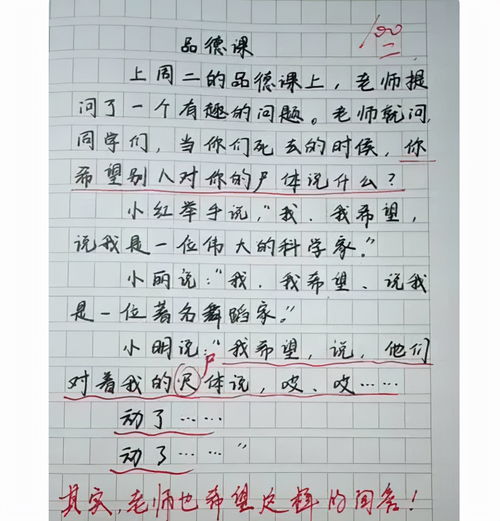 100
品德课
上周二的品德课上，老师提
问了一个有趣的问题。老师就问，
同学们，当你们死去的时候，你
希望别人对你的尸体说什么？
小红举手说，"我．我希望，
说我是一位伟大的科学家。"
小丽说："我．我希望、说我
是一位著名舞蹈家。"
小明说："我希望，说，他们
尸
对着我的尺体说，哎、哎……
动了……
动了……"
其实，老师也希望这样的回答！